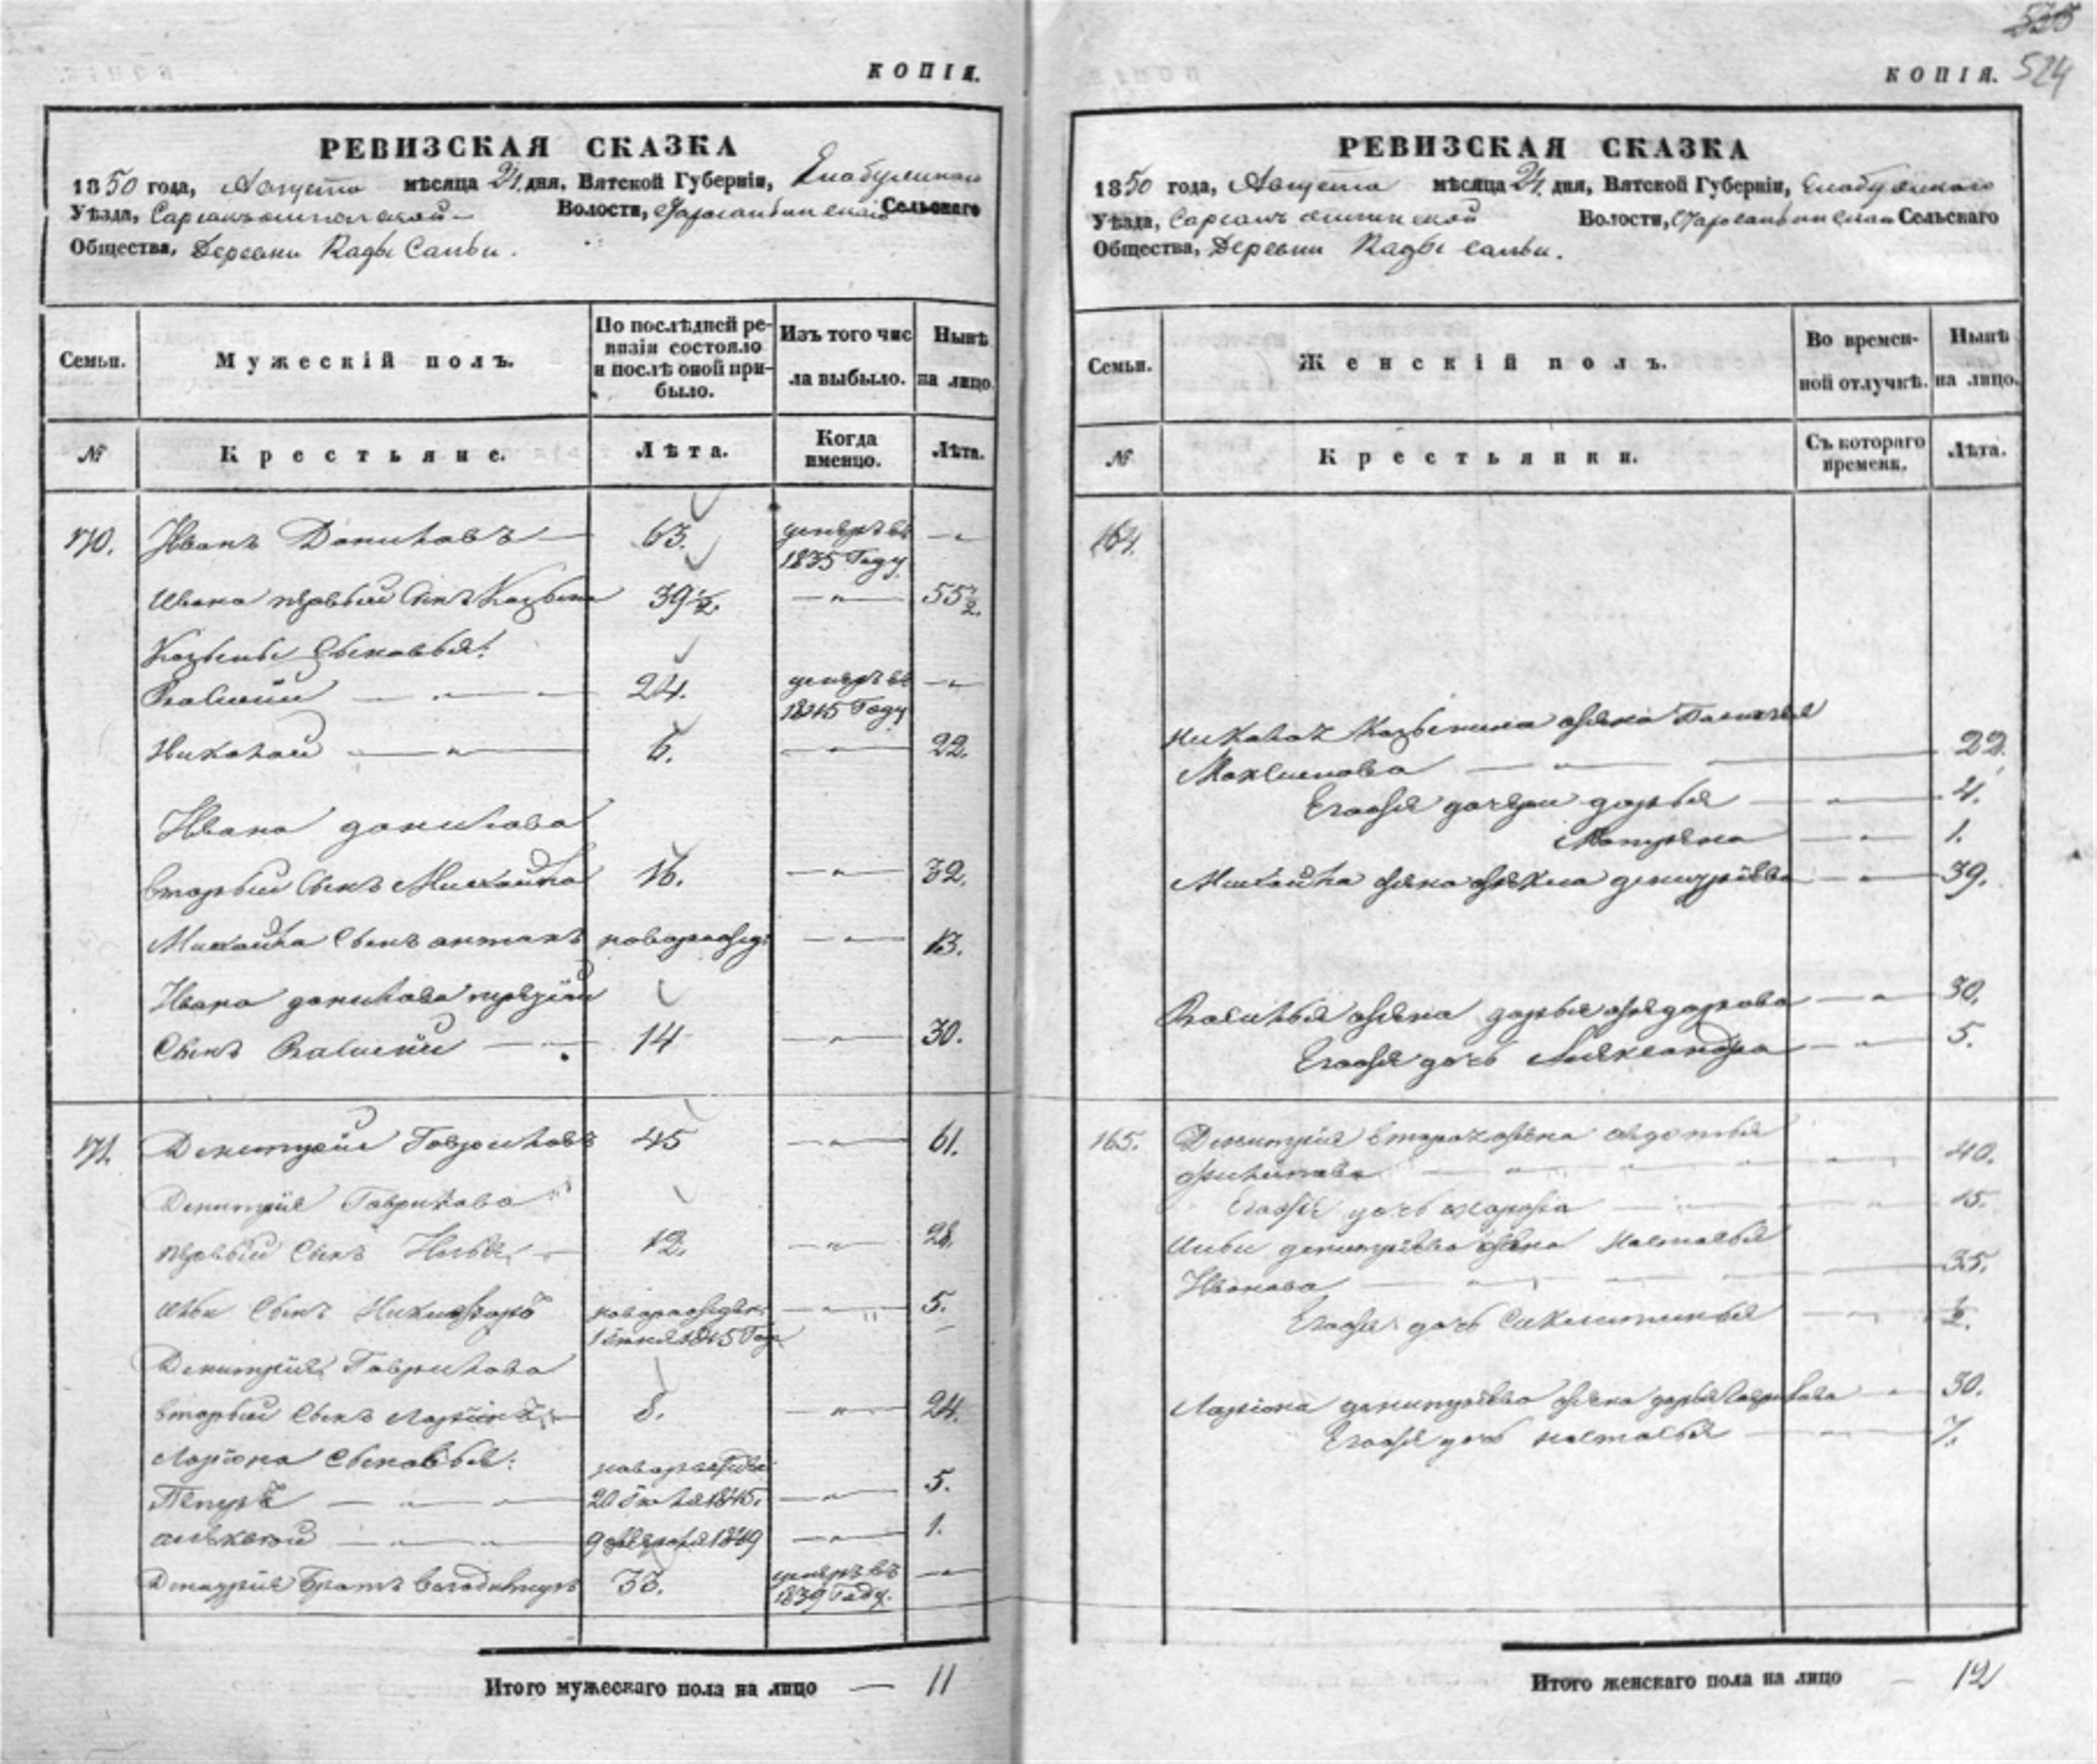 КОПІЯ.
РЕВИЗСКАЯ СКАЗКА
1850 года, Августа мѣсяца 21. дня, Вятской Губерніи, Елабужскаго
Уѣзда, Волости, Сельскаго
Общества, Деревни Кады Сальи.
Семьи. Мужескій полъ. По послѣдней ре-
визіи состояло
и послѣ оной при-
было. Изъ того чис
ла выбыло. Нынѣ
на лицо.
№ Крестьяне. Лѣта. Когда
именно. Лѣта.
170. Иванъ Даниловъ — 63. умеръ въ
1835 Году
Ивана первый сынъ Козьма 39½. — " — 55½.
Козьмы сыновья:
Василій — " — 24. умеръ въ
1845 Году
Николай — " — 6. — " — 22.
Ивана Данилова
второй сынъ Михайла 16. — " — 32.
Михайла сынъ новорожд: — " — 13.
Ивана Данилова третій
сынъ Василій — 14 — " — 30.
171. Дмитрій Гавриловъ 45 — " — 61.
Дмитрія Гаврилова
первый сынъ 12. — " — 28.
сынъ Никифоръ новорожден: — " — 5.
1845 Год
Дмитрія Гаврилова
второй сынъ Ларіонъ 8. — " — 24.
Ларіона сыновья: новорожден:
Петръ — " — 20 1845. — " — 5.
Алексей — " — 9 февраля 1849 — " — 1.
Дмитрія братъ 33. умеръ въ
1839 Году.
Итого мужескаго пола на лицо — 11
525
КОПІЯ. 524
РЕВИЗСКАЯ СКАЗКА
1850 года, Августа мѣсяца 21. дня, Вятской Губерніи, Елабужскаго
Уѣзда, Волости, Сельскаго
Общества, Деревни Кады сальи.
Семьи. Женскій полъ. Во времен-
ной отлучкѣ. Нынѣ
на лицо.
№ Крестьянки. Съ котораго
времени. Лѣта.
164.
Николая Козьмина жена
Максимова — " — 22.
Егоже дочери Дарья — " — 4.
Матрена — " — 1.
Михайла жена Дмитріева — " — 39.
Василья жена Дарья Федорова — " — 30.
Егоже дочь Александра — " — 5.
165. Дмитрія втораго жена Авдотья
Филипова — " — 40.
Егоже дочь — " — 15.
Дмитріева жена Настасья
Иванова — " — 35.
Егоже дочь — " — ½.
Ларіона Дмитріева жена Дарья Гаврилова — " — 30.
Егоже дочь Настасья — " — 7.
Итого женскаго пола на лицо — 12